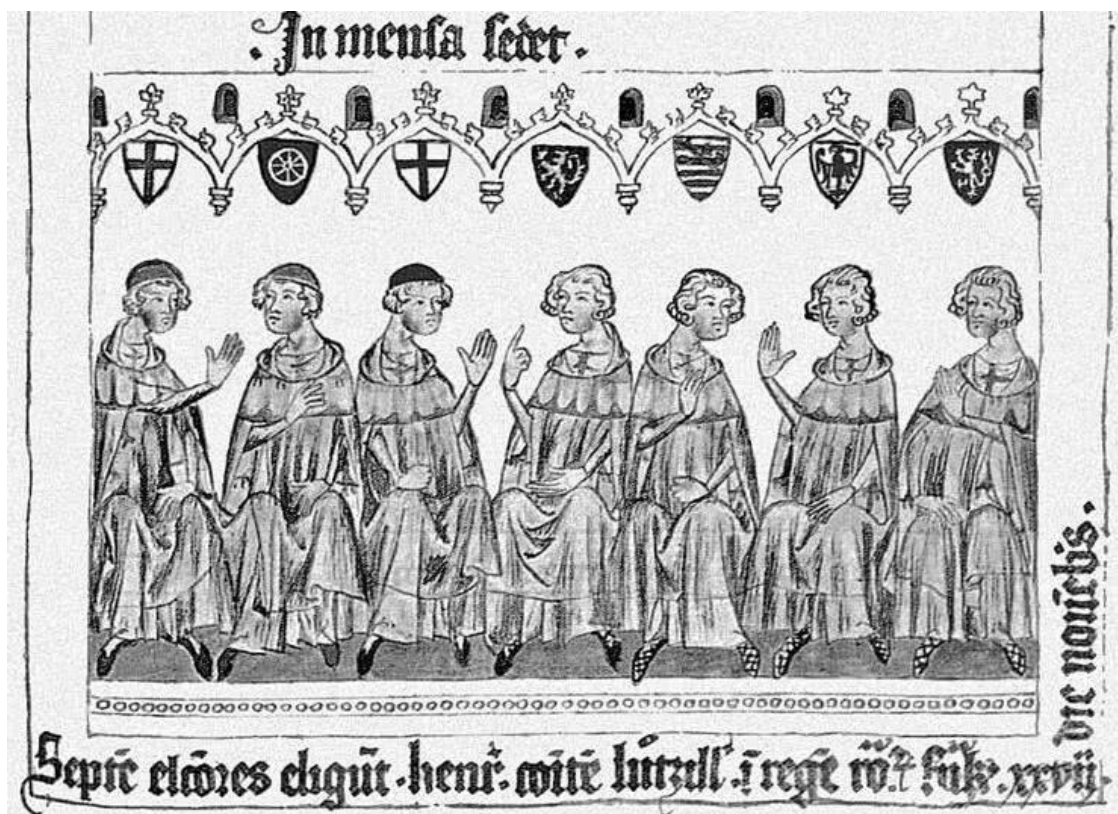 . In mensa sedet .
Septē elcōres eligūt · henr̄ · coītē lutzill' · ī regē xxvij
die nouēbis .